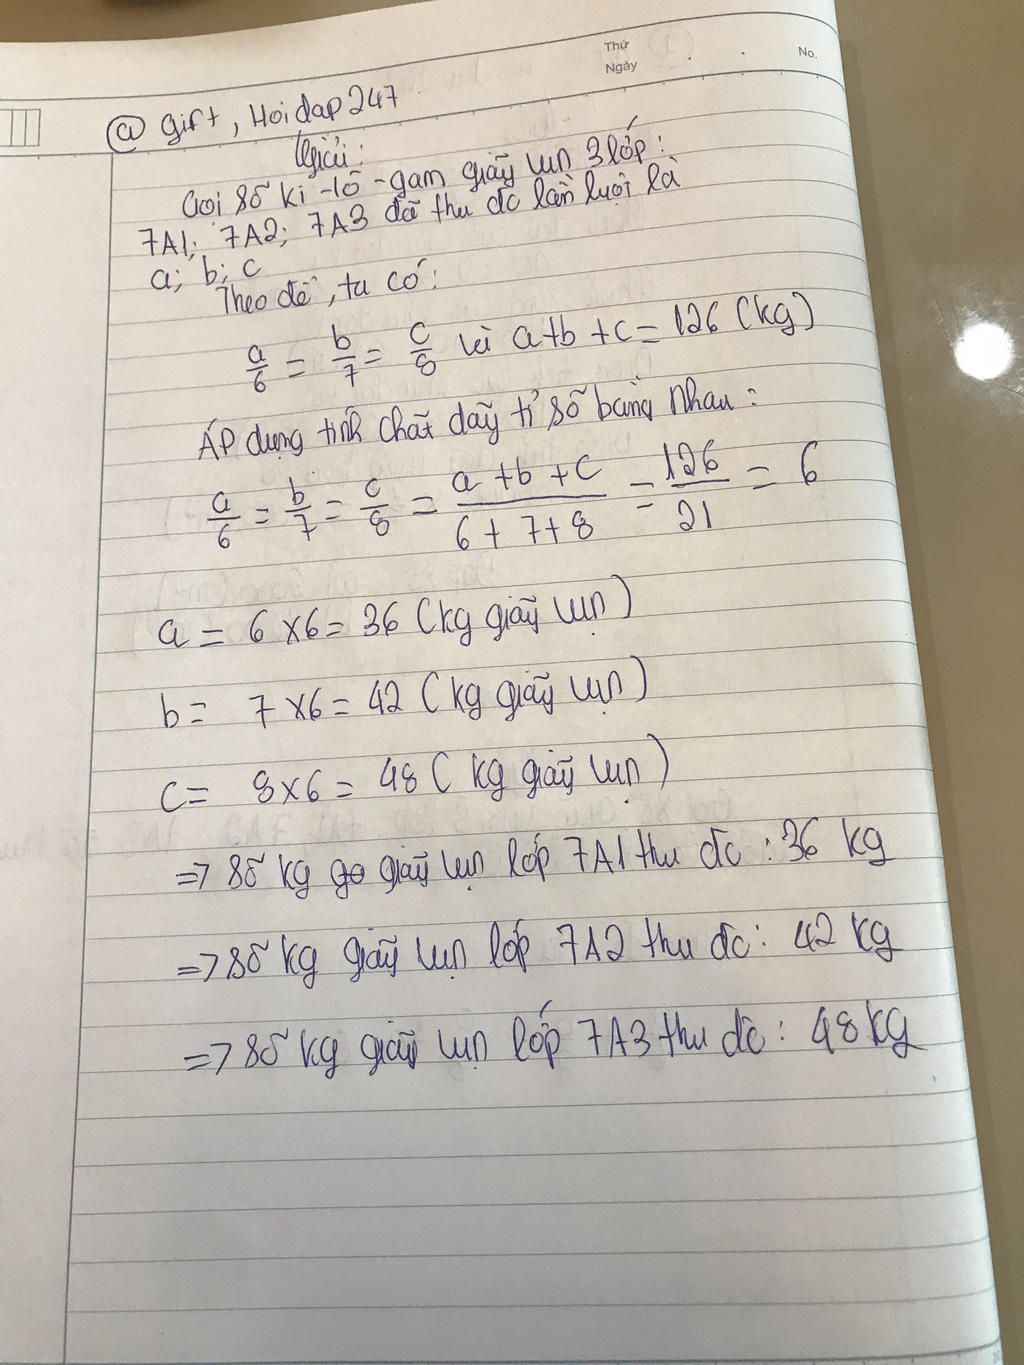 Thứ
No.
Ngày
@ gift, Hoidap247
Giải:
Gọi số ki-lô-gam giấy vụn 3 lớp:
7A1; 7A2; 7A3 đã thu đc lần lượt là
a; b; c
Theo đề, ta có:
a/6 = b/7 = c/8 và a+b+c = 126 (kg)
Áp dụng tính chất dãy tỉ số bằng nhau:
a/6 = b/7 = c/8 = (a+b+c)/(6+7+8) = 126/21 = 6
a = 6×6 = 36 (kg giấy vụn)
b = 7×6 = 42 (kg giấy vụn)
c = 8×6 = 48 (kg giấy vụn)
=> Số kg giấy vụn lớp 7A1 thu đc: 36 kg
=> Số kg giấy vụn lớp 7A2 thu đc: 42 kg
=> Số kg giấy vụn lớp 7A3 thu đc: 48 kg